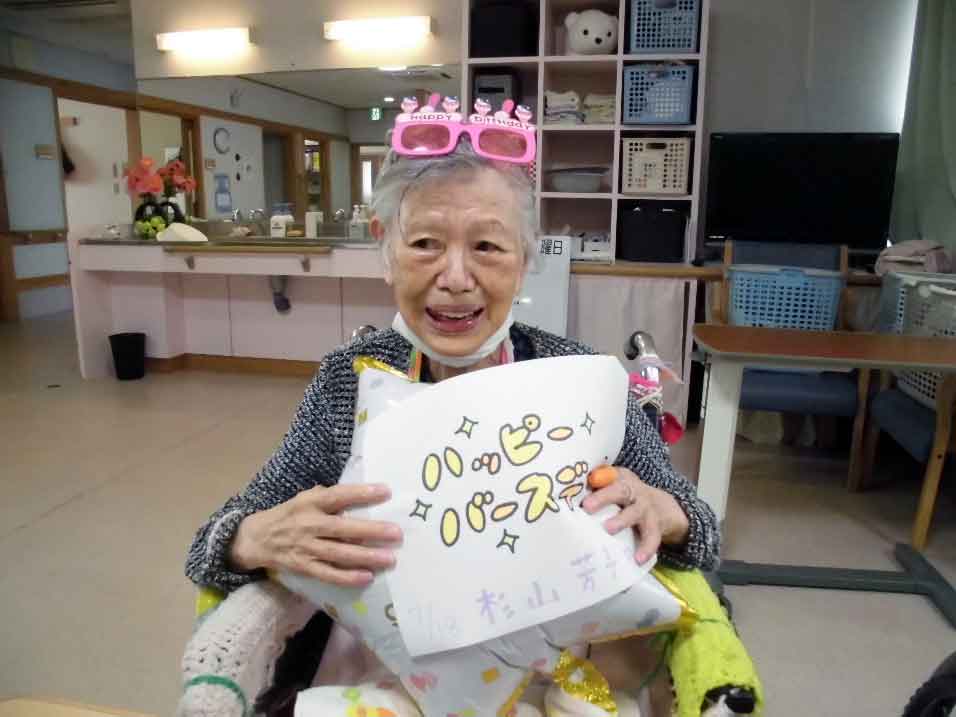 HAPPY BIRTHDAY
曜日
ハッピー
バースデ
7/18 杉山 芳